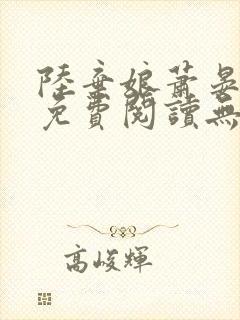 陸棄娘蕭晏
免費閱讀無
高峻輝